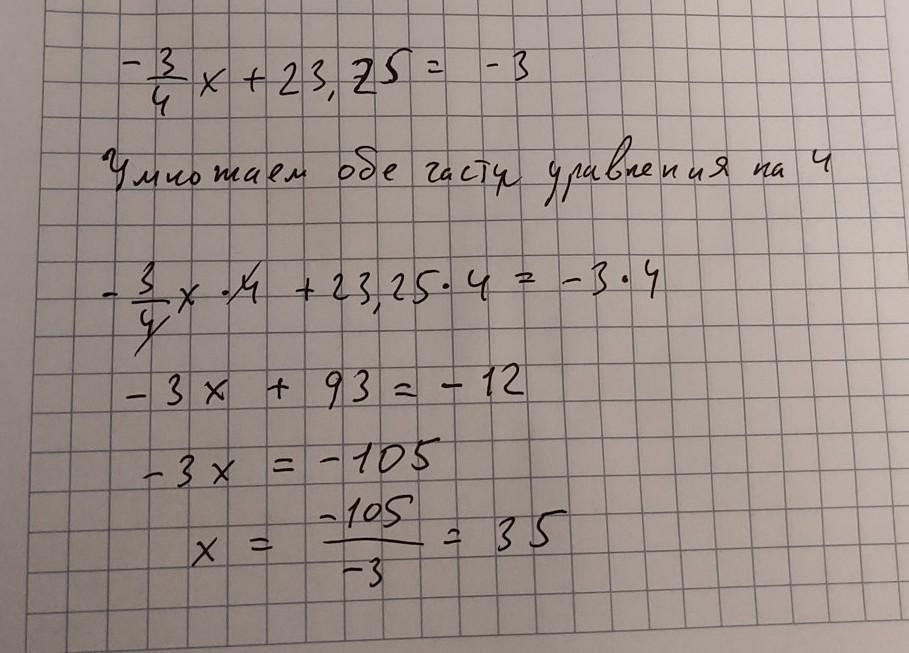 -3/4 x + 23,25 = -3
Умножаем обе части уравнения на 4
-3/4 x · 4 + 23,25 · 4 = -3 · 4
-3x + 93 = -12
-3x = -105
x = -105/-3 = 35